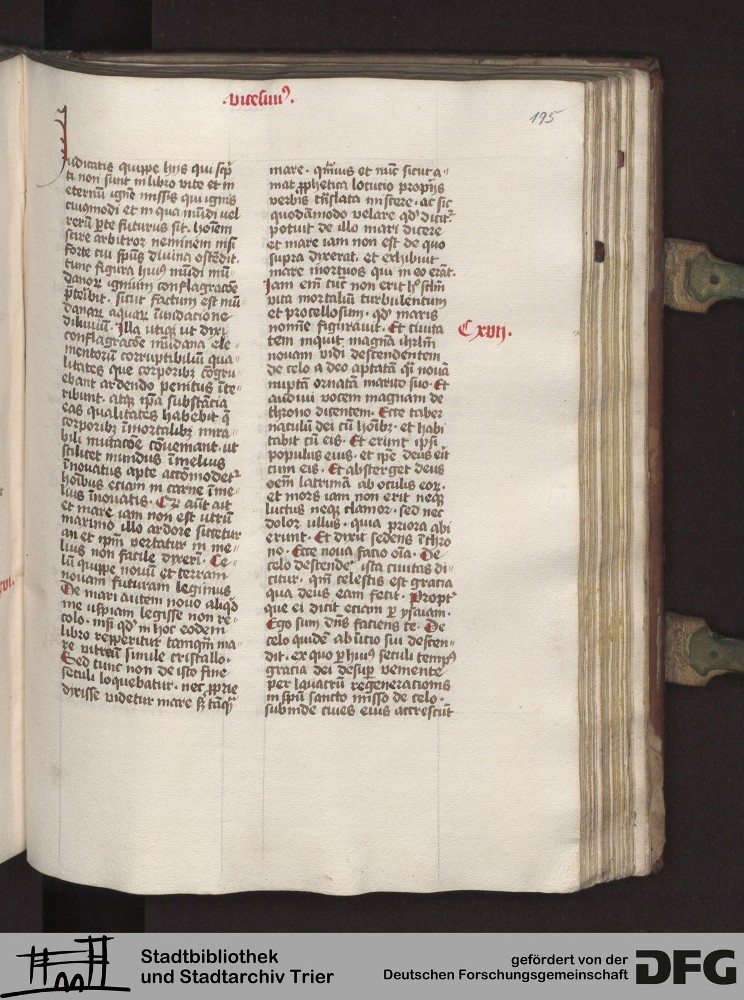 .vicesimꝯ.
195
Iudicatis quippe hiis qui scͥp
ti non sunt in libro vite et in
eternū ignē missis qui ignis
cuiꝯmodi et in qua mūdi vel
rerū ꝑte futurus sit. hoīem
scire arbitror neminem nisi
forte cui spūs diuinꝯ ostēdit.
tunc figura huiꝯ mūdi mū
danoꝝ ignium conflagracōe
ꝑteribit. sicut factum est mū
danaꝝ aquaꝝ inūdacione
diluuiū. Illa utiqꝫ ut dixi
conflagracōe mūdana ele
mentorū corruptibiliū qua
litates que corporibꝫ cōgru
ebant ardendo penitus īte
ribunt. atqꝫ ipa substācia
eas qualitates habebit q̄
corporibꝫ īmortalibꝫ mira
bili mutacōe cōueniant. ut
scilicet mundus ī melius
īnouatus apte accōmodet᷑
hoībus etiam in carne ī me
lius īnouatis. Qꝫ aūt ait
et mare iam non est utrū
maximo illo ardore siccetur
an et ipm̄ vertatur in me
lius non facile dixerī. Ce
lū quippe nouū et terram
nouam futuram legimus
De mari autem nouo aliqͥd
me uspiam legisse non re
colo. nisi qd̓ in hoc eodem
libro repperitur tamqm̄ ma
re vitreū simile cristallo.
Sed tunc non de isto fine
seculi loquebatur. nec ꝓprie
dixisse videtur mare sꝫ tāqͣ
mare. qͣmuis et nūc sicut a
mat ꝓphetica locutio propiis
verbis trāslata miscere. ac sic
quodāmodo velare qd̓ dicit᷑.
potuit de illo mari dicere
et mare iam non est de quo
supra dixerat. et exhibuit
mare mortuos qui in eo erāt.
Iam em̄ tūc non erit hͦ sclm̄
vita mortaliū turbulentum
et procellosum. qd̓ maris
nomīe figurauit. Et ciuita
tem inquit magnā ihrlm̄
nouam vidi descendentem
de celo a deo aptatā qͣi nouā
nuptā ornatā marito suo. Et
audiui vocem magnam de
throno dicentem. Ecce taber
naculū dei cū hoībꝫ. et habi
tabit cū eis. Et erunt ipsi
populus eius. et ip̄e deus eīt
cum eis. Et absterget deus
oēm lacrimā ab oculis eoꝝ.
et mors iam non erit neqꝫ
luctus neqꝫ clamor. sed nec
dolor ullus. quia priora abi
erunt. Et dixit sedens ī thro
no. Ecce noua facio oīa. De
celo descende᷑ ista ciuitas di
citur. qm̄ celestis est gracia
qua deus eam fecit. Propt᷑
que ei dicit etiam ꝑ ysaiam.
Ego sum dn̄s faciens te. De
celo quidē ab inicio sui descen
dit. ex quo ꝑ huiꝯ seculi tempꝯ
gracia dei desuꝑ veniente
per lauacrū regeneracionis
in spū sancto misso de celo.
subinde ciues eius accrescūt
Cxvij.
Stadtbibliothek
und Stadtarchiv Trier
gefördert von der
Deutschen Forschungsgemeinschaft
DFG